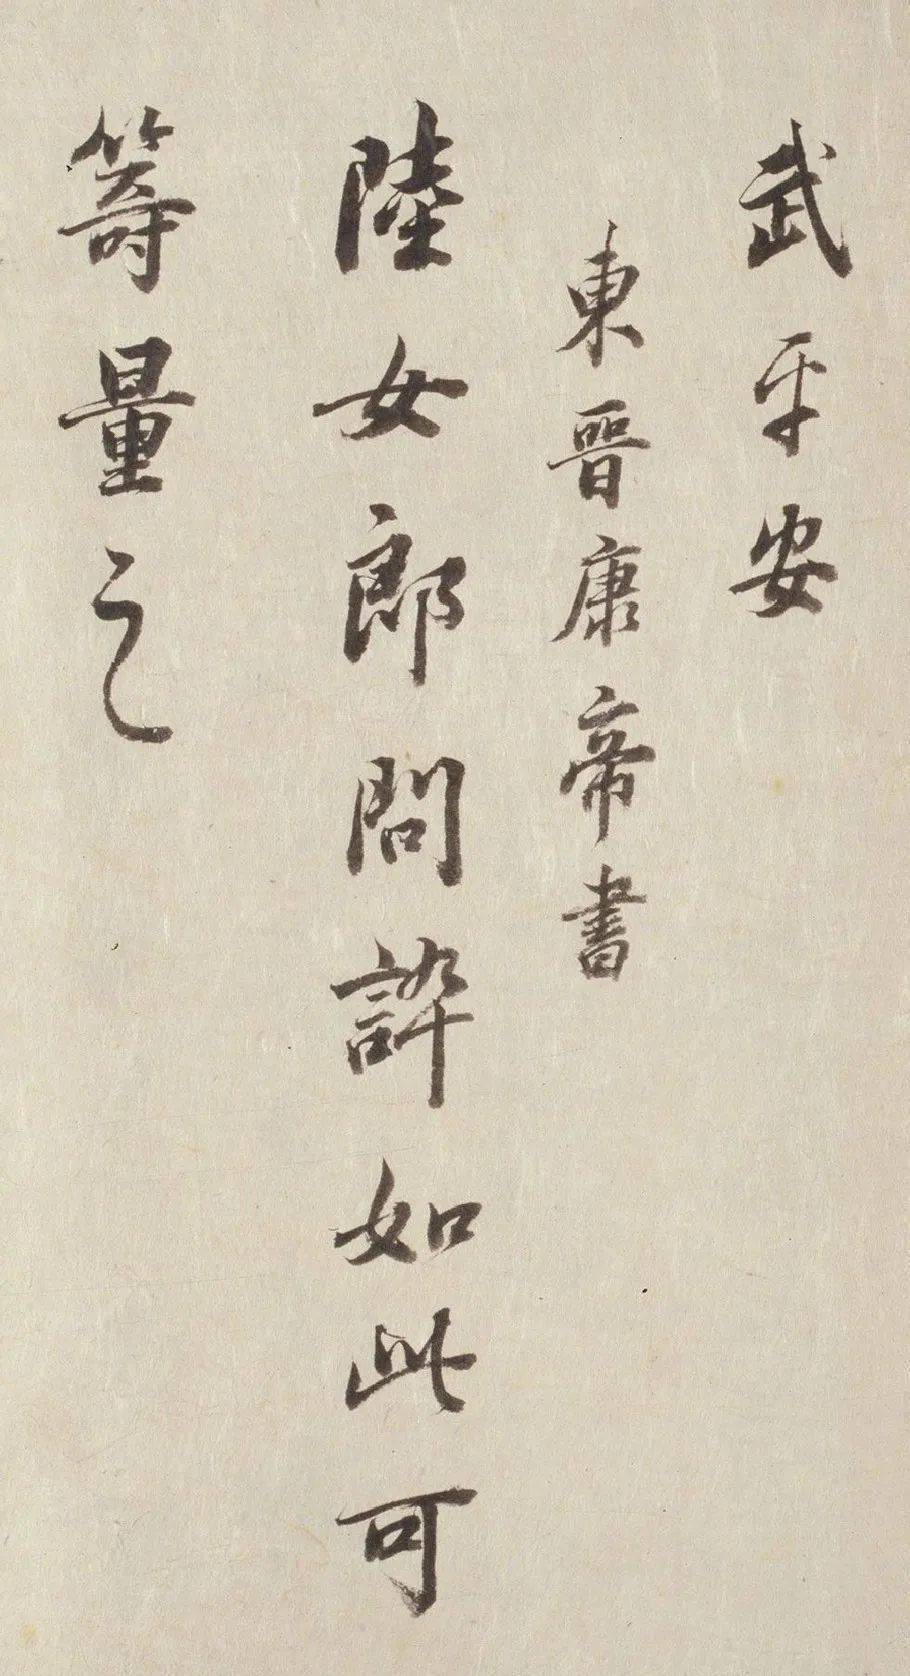 武平安
東晉康帝書
陸女郎問訝如此可
籌量之